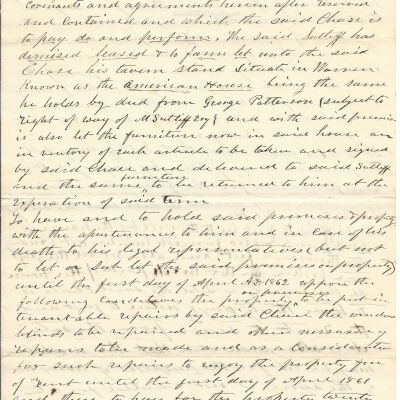 covenants and agreements herein after reserved
and contained and which the said Chase is
to pay do and perform. The said Sutliff has
demised leased & to farm let unto the said
Chase his tavern Stand Situate in Warren
Known as the American House being the same
he holds by deed from George Patterson (subject to
right of way of M Sutliff Esq) and with said premises
is also let the furniture now in said house an
in ventory of each article to be taken and signed
by said Chase and delivered to said Sutliff
furniture
and the same to be returned to him at the
expiration of said term
To have and to hold said premises & property
with the apurtenances to him and in case of his
death to his legal representatives (but not
to let or sub let the said premises or property)
until the first day of April AD 1862 uppon the
following conditions the property to be put in
tenantable repairs by said Chase the window
blinds to be repaired and other nessasary
repairs to be made and as a Consideration
for such repairs to enjoy the property free
of Rent until the first day of April 1861
and then to pay for this property twenty